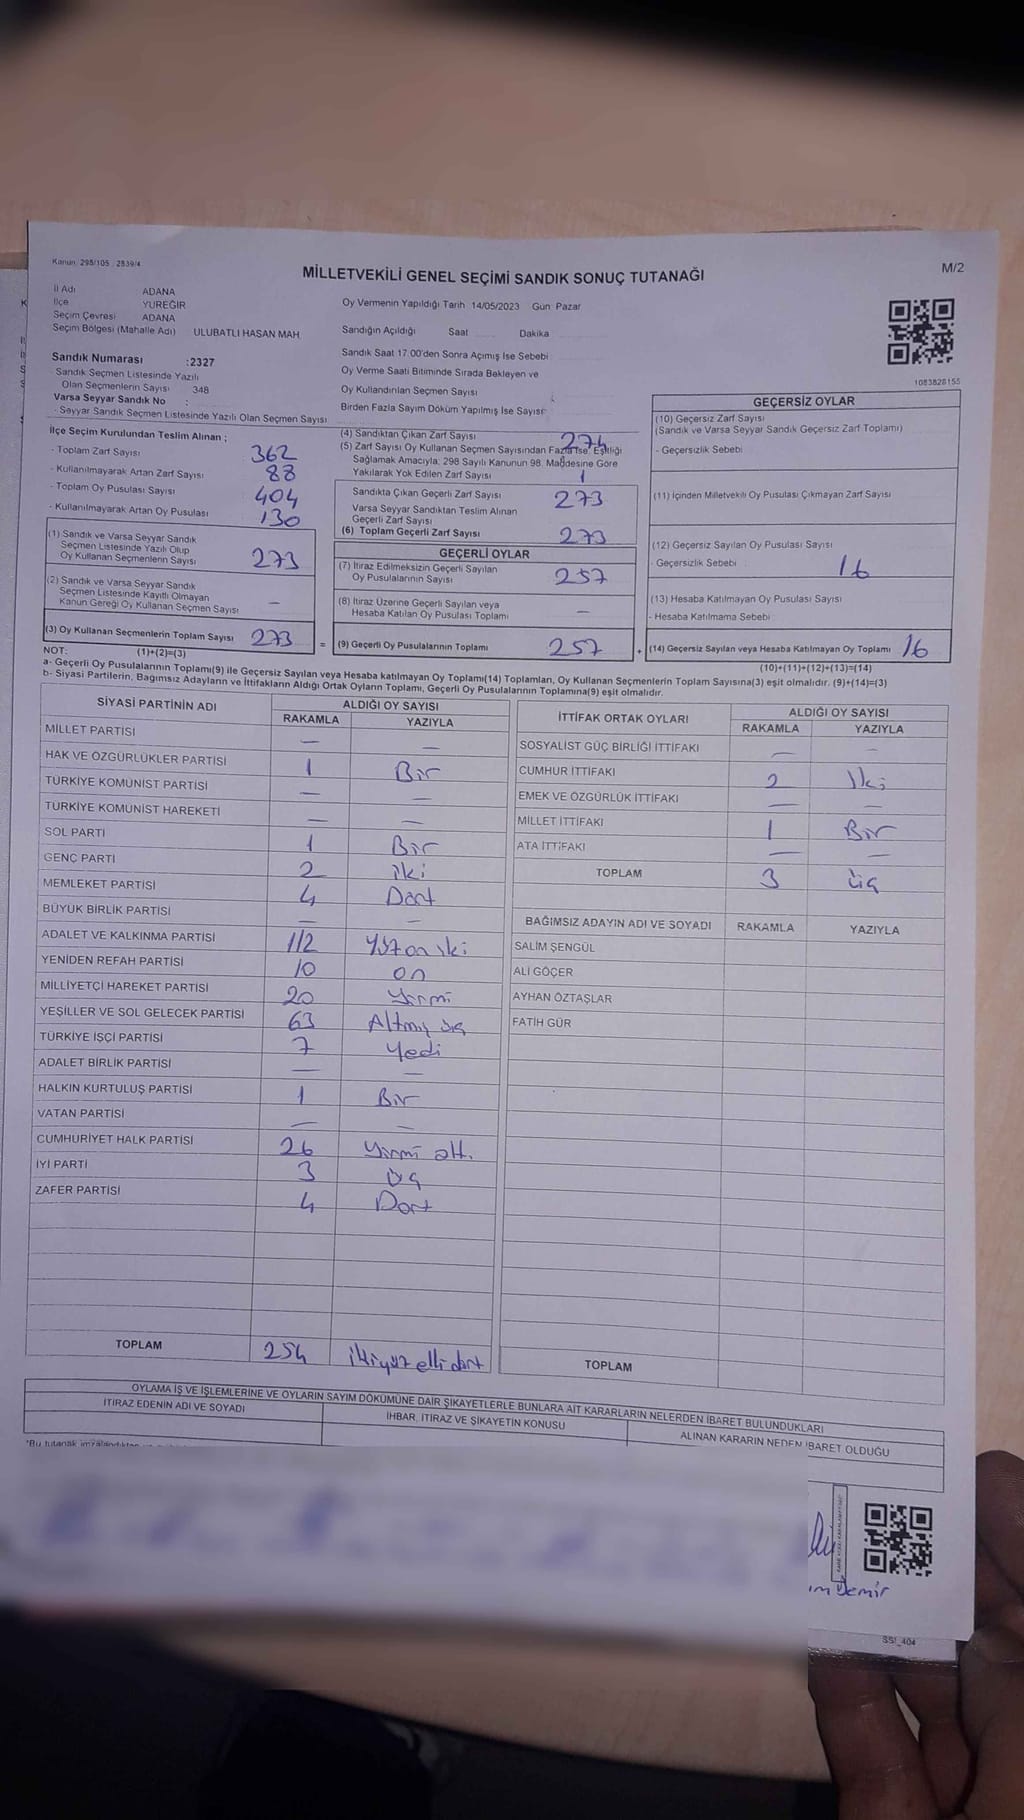 Kanun: 298/105 2839/4
M/2
MİLLETVEKİLİ GENEL SEÇİMİ SANDIK SONUÇ TUTANAĞI
İl Adı ADANA
İlçe YÜREĞİR
Seçim Çevresi ADANA
Seçim Bölgesi (Mahalle Adı) ULUBATLI HASAN MAH
Sandık Numarası :2327
- Sandık Seçmen Listesinde Yazılı
Olan Seçmenlerin Sayısı 348
Varsa Seyyar Sandık No :
- Seyyar Sandık Seçmen Listesinde Yazılı Olan Seçmen Sayısı
Oy Vermenin Yapıldığı Tarih 14/05/2023 Gün Pazar
Sandığın Açıldığı Saat Dakika
Sandık Saat 17.00'den Sonra Açımış İse Sebebi
Oy Verme Saati Bitiminde Sırada Bekleyen ve
Oy Kullandırılan Seçmen Sayısı
Birden Fazla Sayım Döküm Yapılmış İse Sayısı
1083828155
İlçe Seçim Kurulundan Teslim Alınan ;
- Toplam Zarf Sayısı 362
- Kullanılmayarak Artan Zarf Sayısı 88
- Toplam Oy Pusulası Sayısı 404
- Kullanılmayarak Artan Oy Pusulası 130
(1) Sandık ve Varsa Seyyar Sandık
Seçmen Listesinde Yazılı Olup
Oy Kullanan Seçmenlerin Sayısı 273
(2) Sandık ve Varsa Seyyar Sandık
Seçmen Listesinde Kayıtlı Olmayan
Kanun Gereği Oy Kullanan Seçmen Sayısı —
(3) Oy Kullanan Seçmenlerin Toplam Sayısı 273 =
(4) Sandıktan Çıkan Zarf Sayısı 274
(5) Zarf Sayısı Oy Kullanan Seçmen Sayısından Fazla İse, Eşitliği
Sağlamak Amacıyla, 298 Sayılı Kanunun 98. Maddesine Göre
Yakılarak Yok Edilen Zarf Sayısı 1
Sandıkta Çıkan Geçerli Zarf Sayısı 273
Varsa Seyyar Sandıktan Teslim Alınan
Geçerli Zarf Sayısı
(6) Toplam Geçerli Zarf Sayısı 273
GEÇERLİ OYLAR
(7) İtiraz Edilmeksizin Geçerli Sayılan
Oy Pusulalarının Sayısı 257
(8) İtiraz Üzerine Geçerli Sayılan veya
Hesaba Katılan Oy Pusulası Toplamı —
(9) Geçerli Oy Pusulalarının Toplamı 257 +
GEÇERSİZ OYLAR
(10) Geçersiz Zarf Sayısı
(Sandık ve Varsa Seyyar Sandık Geçersiz Zarf Toplamı)
- Geçersizlik Sebebi
(11) İçinden Milletvekili Oy Pusulası Çıkmayan Zarf Sayısı
(12) Geçersiz Sayılan Oy Pusulası Sayısı
- Geçersizlik Sebebi 16
(13) Hesaba Katılmayan Oy Pusulası Sayısı
- Hesaba Katılmama Sebebi
(14) Geçersiz Sayılan veya Hesaba Katılmayan Oy Toplamı 16
NOT: (1)+(2)=(3)
(10)+(11)+(12)+(13)=(14)
a- Geçerli Oy Pusulalarının Toplamı(9) ile Geçersiz Sayılan veya Hesaba katılmayan Oy Toplamı(14) Toplamları, Oy Kullanan Seçmenlerin Toplam Sayısına(3) eşit olmalıdır. (9)+(14)=(3)
b- Siyasi Partilerin, Bağımsız Adayların ve İttifakların Aldığı Ortak Oyların Toplamı, Geçerli Oy Pusulalarının Toplamına(9) eşit olmalıdır.
SİYASİ PARTİNİN ADI ALDIĞI OY SAYISI
RAKAMLA YAZIYLA
MİLLET PARTİSİ — —
HAK VE ÖZGÜRLÜKLER PARTİSİ 1 Bir
TÜRKİYE KOMÜNİST PARTİSİ — —
TÜRKİYE KOMÜNİST HAREKETİ — —
SOL PARTİ 1 Bir
GENÇ PARTİ 2 iki
MEMLEKET PARTİSİ 4 Dört
BÜYÜK BİRLİK PARTİSİ — —
ADALET VE KALKINMA PARTİSİ 112 Yüzon iki
YENİDEN REFAH PARTİSİ 10 on
MİLLİYETÇİ HAREKET PARTİSİ 20 Yirmi
YEŞİLLER VE SOL GELECEK PARTİSİ 63 Altmış üç
TÜRKİYE İŞÇİ PARTİSİ 7 Yedi
ADALET BİRLİK PARTİSİ — —
HALKIN KURTULUŞ PARTİSİ 1 Bir
VATAN PARTİSİ — —
CUMHURİYET HALK PARTİSİ 26 Yirmi altı
İYİ PARTİ 3 üç
ZAFER PARTİSİ 4 Dört
TOPLAM 254 ikiyüz elli dört
İTTİFAK ORTAK OYLARI ALDIĞI OY SAYISI
RAKAMLA YAZIYLA
SOSYALİST GÜÇ BİRLİĞİ İTTİFAKI — —
CUMHUR İTTİFAKI 2 İki
EMEK VE ÖZGÜRLÜK İTTİFAKI — —
MİLLET İTTİFAKI 1 Bir
ATA İTTİFAKI — —
TOPLAM 3 üç
BAĞIMSIZ ADAYIN ADI VE SOYADI RAKAMLA YAZIYLA
SALİM ŞENGÜL
ALİ GÖÇER
AYHAN ÖZTAŞLAR
FATİH GÜR
TOPLAM
OYLAMA İŞ VE İŞLEMLERİNE VE OYLARIN SAYIM DÖKÜMÜNE DAİR ŞİKAYETLERLE BUNLARA AİT KARARLARIN NELERDEN İBARET BULUNDUKLARI
İTİRAZ EDENİN ADI VE SOYADI
İHBAR, İTİRAZ VE ŞİKAYETİN KONUSU
ALINAN KARARIN NEDEN İBARET OLDUĞU
*Bu tutanak
Demir
SSİ_404